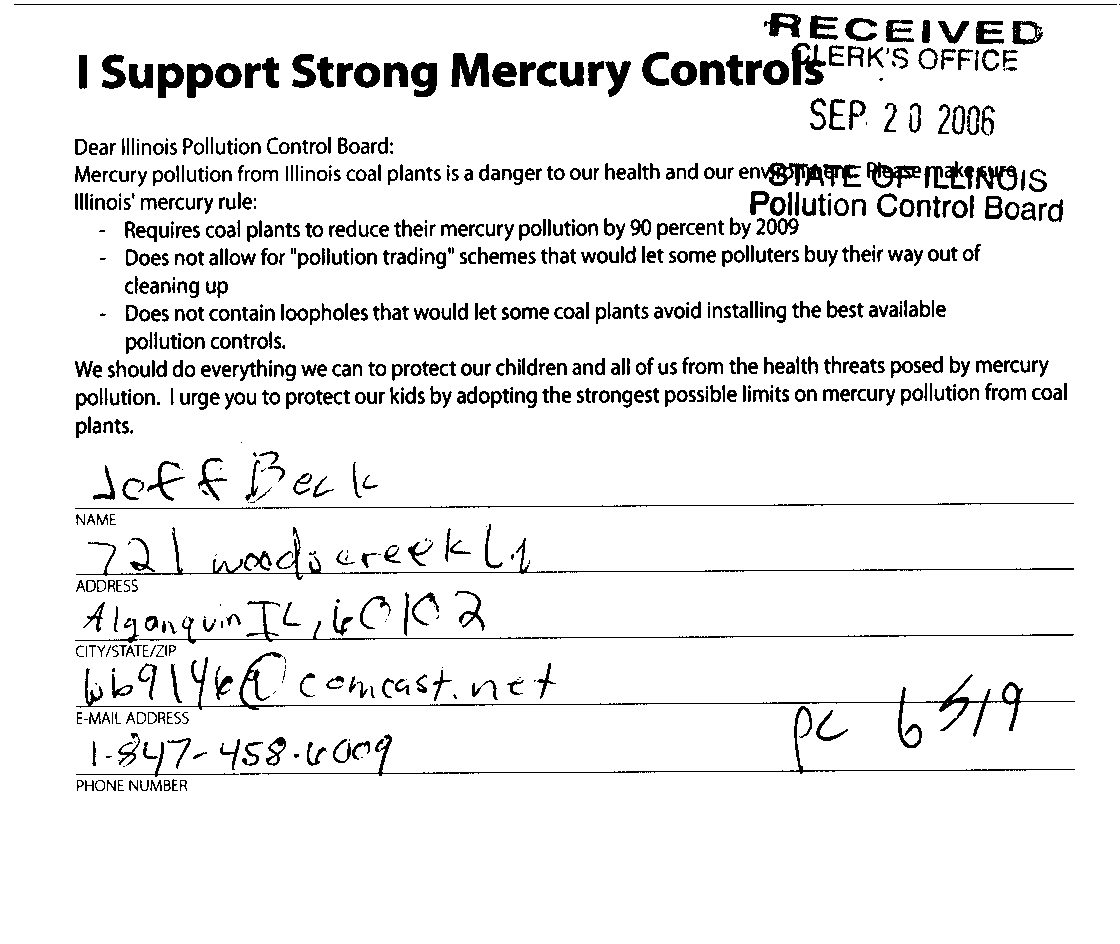 RECEIVED
CLERK'S OFFICE
I Support Strong Mercury Controls
SEP 20 2006
Dear Illinois Pollution Control Board:
Mercury pollution from Illinois coal plants is a danger to our health and our environment. Please make sure
STATE OF ILLINOIS
Illinois' mercury rule:
Pollution Control Board
- Requires coal plants to reduce their mercury pollution by 90 percent by 2009
- Does not allow for "pollution trading" schemes that would let some polluters buy their way out of
cleaning up
- Does not contain loopholes that would let some coal plants avoid installing the best available
pollution controls.
We should do everything we can to protect our children and all of us from the health threats posed by mercury
pollution. I urge you to protect our kids by adopting the strongest possible limits on mercury pollution from coal
plants.
Jeff Beck
NAME
721 woodscreek Ln
ADDRESS
Algonquin IL, 60102
CITY/STATE/ZIP
@comcast.net
E-MAIL ADDRESS
pc 6519
1-847-458-6009
PHONE NUMBER